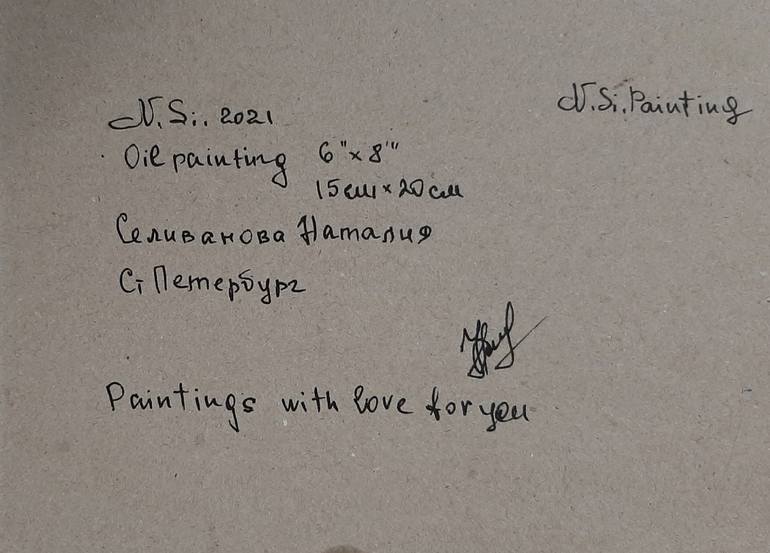 N.Si. 2021
N.Si.Painting
Oil painting 6"x8"
15см x 20см
Селиванова Наталия
Ст Петербург
Paintings with love for you